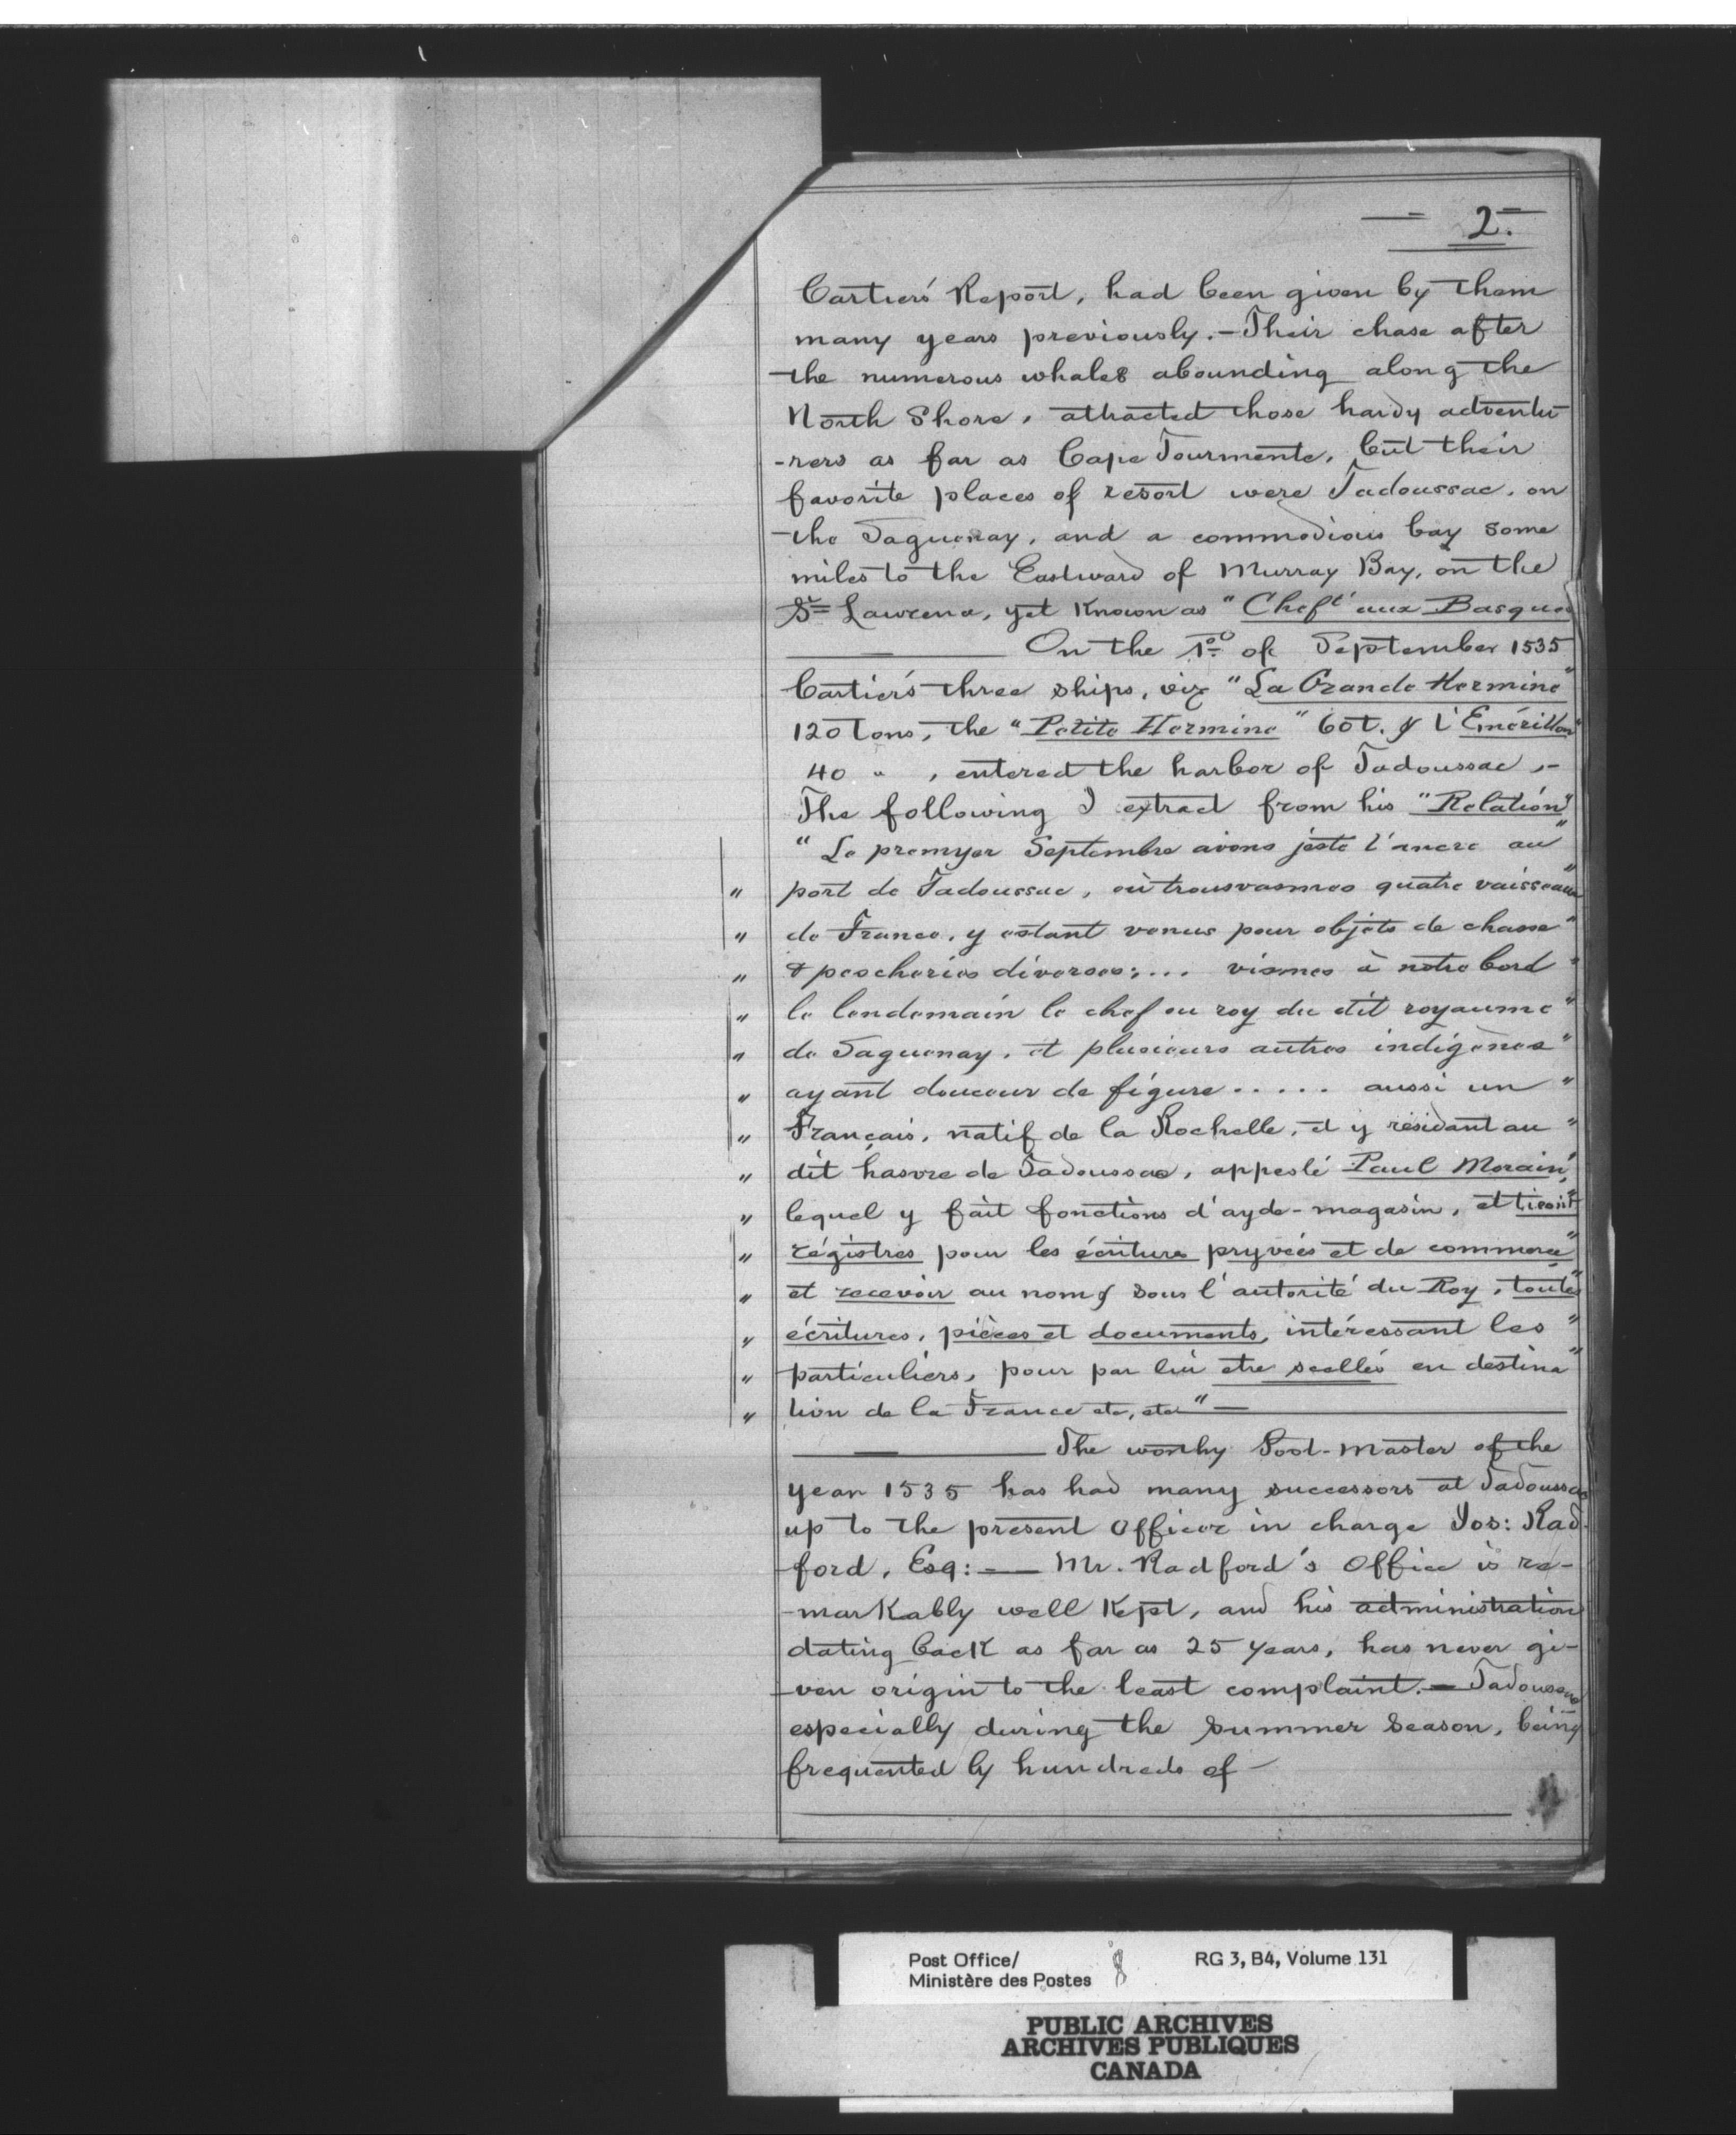 2.
Cartier's Report, had been given by them
many years previously. - Their chase after
the numerous whales abounding along the
North Shore, attracted those hardy adventu-
-rers as far as Cape Tourmente, but their
favorite places of resort were Tadoussac, on
the Saguenay, and a commodious bay some
miles to the Eastward of Murray Bay, on the
St. Lawrence, yet Known as "Chaft aux Basques
On the 1o of September 1535
Cartier's three ships, viz "La Grande Hermine"
120 Tons, the "Petite Hermine" 60 t. & l'Emérillon"
40 " , entered the harbor of Tadoussac ,-
The following I extract from his "Relation"
"Le premyer Septembre avons jesté l'ancre au"
" port de Tadoussac, où trousvasmes quatre vaisseaux"
" de France, y estant venus pour objets de chasse"
" & pescheries diverses; ... vismes à notre bord"
" le lendemain le chef ou roy du dit royaume"
" de Saguenay, et plusieurs autres indigènes"
" ayant douceur de figure ..... aussi un"
" Français, natif de la Rochelle, et y résidant au"
" dit hasvre de Tadoussac, appeslé Paul Morain,"
" lequel y fait fonctions d'ayde-magasin, et tient"
" régistres pour les écritures pryvées et de commerce"
" et recevoir au nom & sous l'autorité du Roy, toutes"
" écritures, pièces et documents, intéressant les"
" particuliers, pour par lui etre scellés en destina"
" tion de la France etc, etc" -
The worthy Post-Master of the
year 1535 has had many successors at Tadoussac
up to the present Officer in charge Jos: Rad-
ford, Esq: - Mr. Radford's Office is re-
-markably well Kept, and his administration
dating back as far as 25 years, has never gi-
-ven origin to the least complaint. - Tadoussac
especially during the Summer Season, being
frequented by hundreds of -
Post Office/
Ministère des Postes
RG 3, B4, Volume 131
PUBLIC ARCHIVES
ARCHIVES PUBLIQUES
CANADA